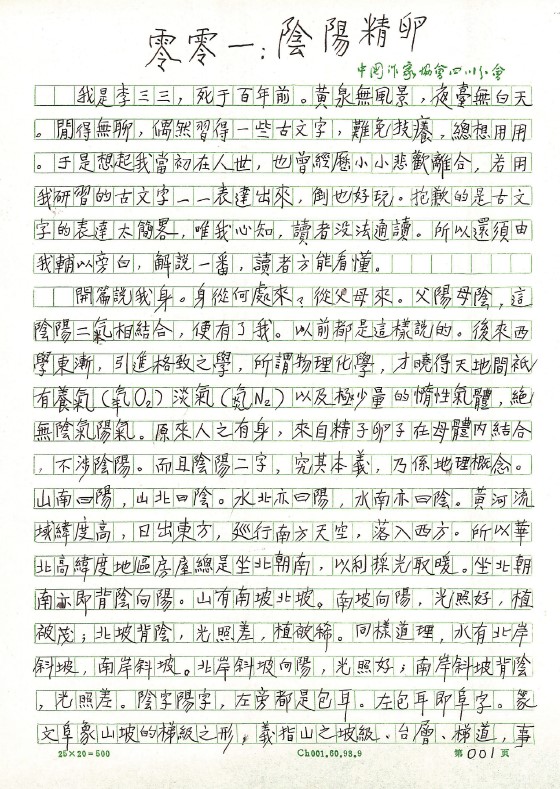 零零一：陰陽精卵
中国作家協會四川分會
我是李三三，死于百年前。黄泉無風景，夜臺無白天
。閒得無聊，偶然習得一些古文字，難免技癢，總想用用
。于是想起我當初在人世，也曾經歷小小悲歡離合，若用
我研習的古文字一一表達出來，倒也好玩。抱歉的是古文
字的表達太簡畧，唯我心知，讀者没法通讀。所以還須由
我輔以旁白，解説一番，讀者方能看懂。
開篇説我身。身從何處來，從父母來。父陽母陰，這
陰陽二氣相結合，便有了我。以前都是這樣説的。後來西
學東漸，引進格致之學，所謂物理化學，才曉得天地間衹
有養氣（氧O₂）淡氣（氮N₂）以及極少量的惰性氣體，絶
無陰氣陽氣。原來人之有身，來自精子卵子在母體内結合
，不涉陰陽。而且陰陽二字，究其本義，乃係地理概念。
山南曰陽，山北曰陰。水北亦曰陽，水南亦曰陰。黄河流
域緯度高，日出東方，巡行南方天空，落入西方。所以華
北高緯度地區房屋總是坐北朝南，以利採光取暖。坐北朝
南亦即背陰向陽。山有南坡北坡。南坡向陽，光照好，植
被茂；北坡背陰，光照差，植被稀。同樣道理，水有北岸
斜坡，南岸斜坡。北岸斜坡向陽，光照好；南岸斜坡背陰
，光照差。陰字陽字，左旁都是包耳。左包耳即阜字。篆
文阜象山坡的梯級之形，義指山之坡級、台層、梯道，事
25×20=500 Ch001.60.93.9 第001頁